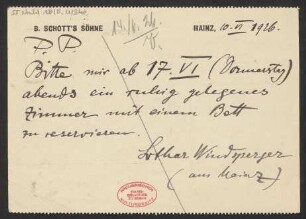 B. SCHOTT'S SÖHNE
MAINZ, 10. VI 1926.
P. P.
Bitte mir ab 17. VI (Donnerstag)
abends ein ruhig gelegenes
Zimmer mit einem Bett
zu reservieren.
Lothar Windsperger
(aus Mainz)